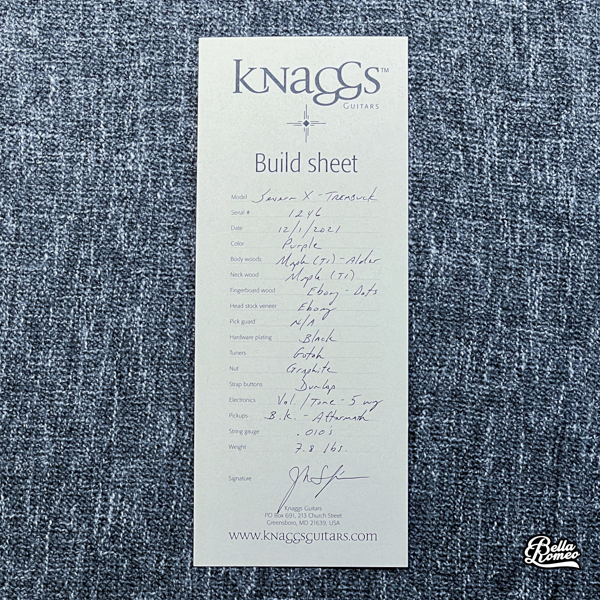 KNaGGS™
GUITARS
Build sheet
Model Severn X - Trembuck
Serial # 1246
Date 12/1/2021
Color Purple
Body woods Maple (T1) - Alder
Neck wood Maple (T1)
Fingerboard wood Ebony - Dots
Head stock veneer Ebony
Pick guard N/A
Hardware plating Black
Tuners Gotoh
Nut Graphite
Strap buttons Dunlop
Electronics Vol./Tone - 5 way
Pickups B.K. - Aftermath
String gauge .010's
Weight 7.8 lbs.
Signature
Knaggs Guitars
PO Box 691, 213 Church Street
Greensboro, MD 21639, USA
www.knaggsguitars.com
Bella
Romeo